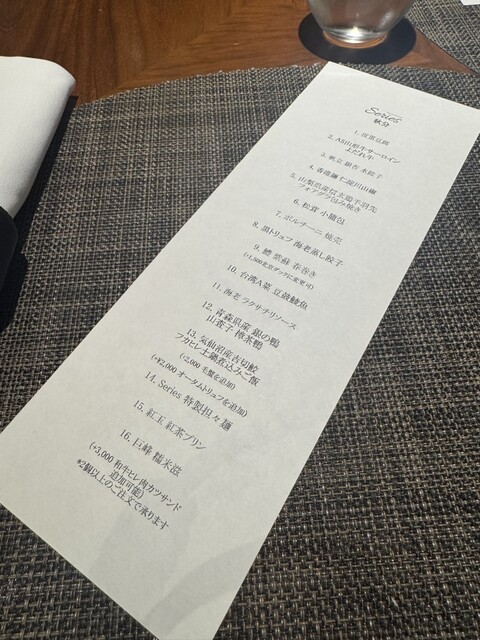 Series
秋分
1. 皮蛋豆腐
2. A5山形牛サーロイン
よだれ牛
3. 帆立 銀杏 水餃子
4. 香港鎌七 淀川山椒
5. 山梨県産信玄鶏手羽先
フォアグラ包み焼き
6. 松茸 小籠包
7. ポルチーニ 焼売
8. 黒トリュフ 海老蒸し餃子
9. 鱧 紫蘇 春巻き
(+1,800北京ダックに変更可)
10. 台湾A菜 豆鼓鯪魚
11. 海老 ラクサチリソース
12. 青森県産 銀の鴨
山査子 樟茶鴨
13. 気仙沼産吉切鮫
フカヒレ土鍋煮込みご飯
(+2,000 毛蟹を追加)
(+¥2,000 オータムトリュフを追加)
14. Series 特製担々麺
15. 紅玉 紅茶プリン
16. 巨峰 糯米滋
(+3,000 和牛ヒレ肉カツサンド
追加可能)
*2個以上のご注文で承ります